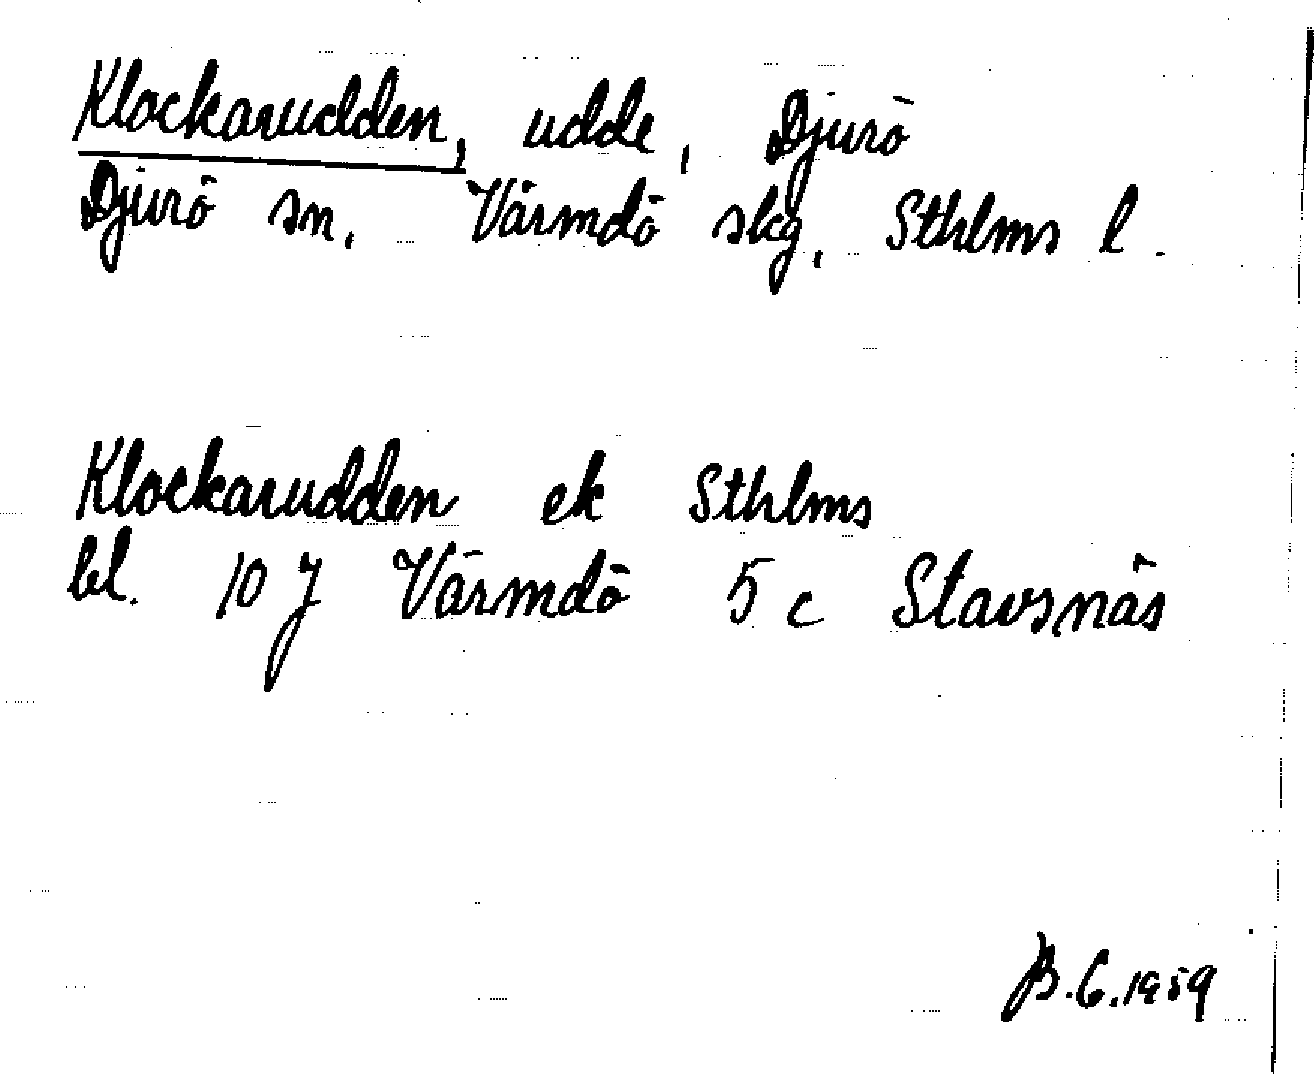 Klockarudden, udde, Djurö
Djurö sn, Värmdö skg, Sthlms l.
Klockarudden ek Sthlms
bl. 10 J Värmdö 5 c Stavsnäs
B.G.1959